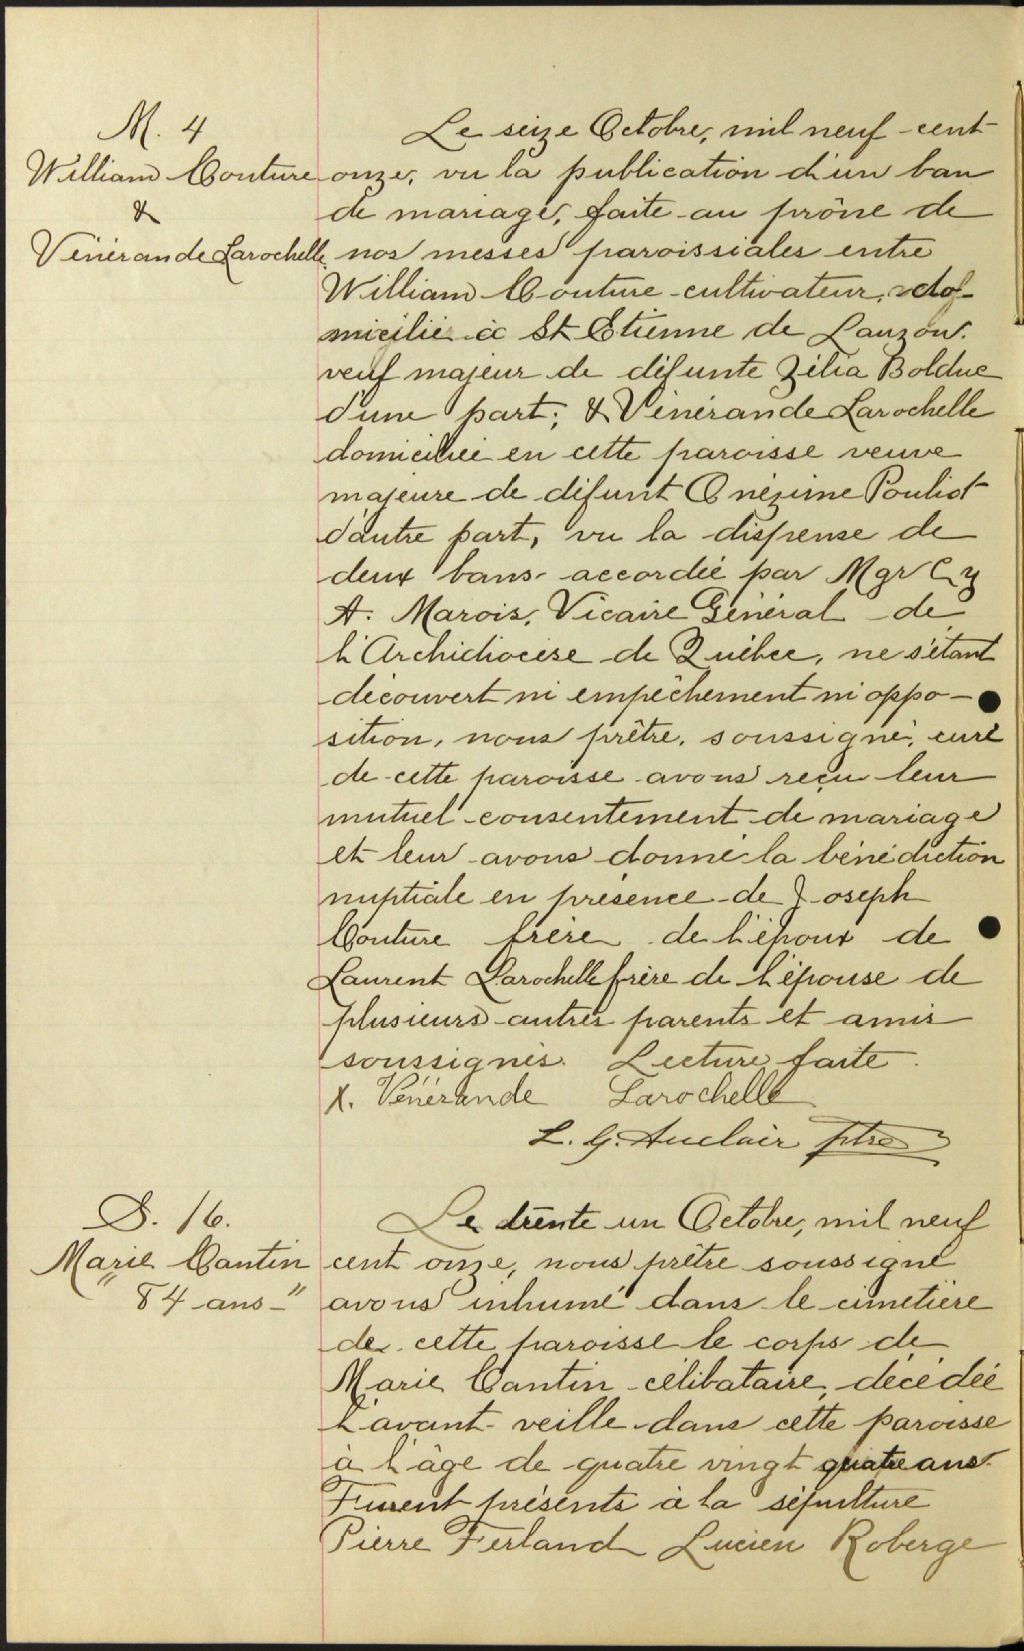 M. 4
William Couture
&
Vénérande Larochelle
Le seize Octobre, mil neuf cent
onze, vu la publication d'un ban
de mariage, faite au prône de
nos messes paroissiales entre
William Couture cultivateur, do-
micilié à St Etienne de Lauzon.
veuf majeur de défunte Zélia Bolduc
d'une part; & Vénérande Larochelle
domiciliée en cette paroisse veuve
majeure de défunt Onézime Pouliot
d'autre part, vu la dispense de
deux bans accordée par Mgr Cy
A. Marois, Vicaire Général de
l'Archidiocèse de Québec, ne s'étant
découvert ni empêchement ni oppo-
sition, nous prêtre, soussigné, curé
de cette paroisse avons reçu leur
mutuel consentement de mariage
et leur avons donné la bénédiction
nuptiale en présence de Joseph
Couture frère de l'époux de
Laurent Larochelle frère de l'épouse de
plusieurs autres parents et amis
soussignés. Lecture faite.
X. Vénérande Larochelle
L. G. Auclair ptre
S. 16.
Marie Cantin
"84 ans-"
Le trente un Octobre, mil neuf
cent onze, nous prêtre soussigné
avons inhumé dans le cimetière
de cette paroisse le corps de
Marie Cantin célibataire, décédée
l'avant-veille dans cette paroisse
à l'âge de quatre vingt quatre ans.
Furent présents à la sépulture
Pierre Ferland Lucien Roberge